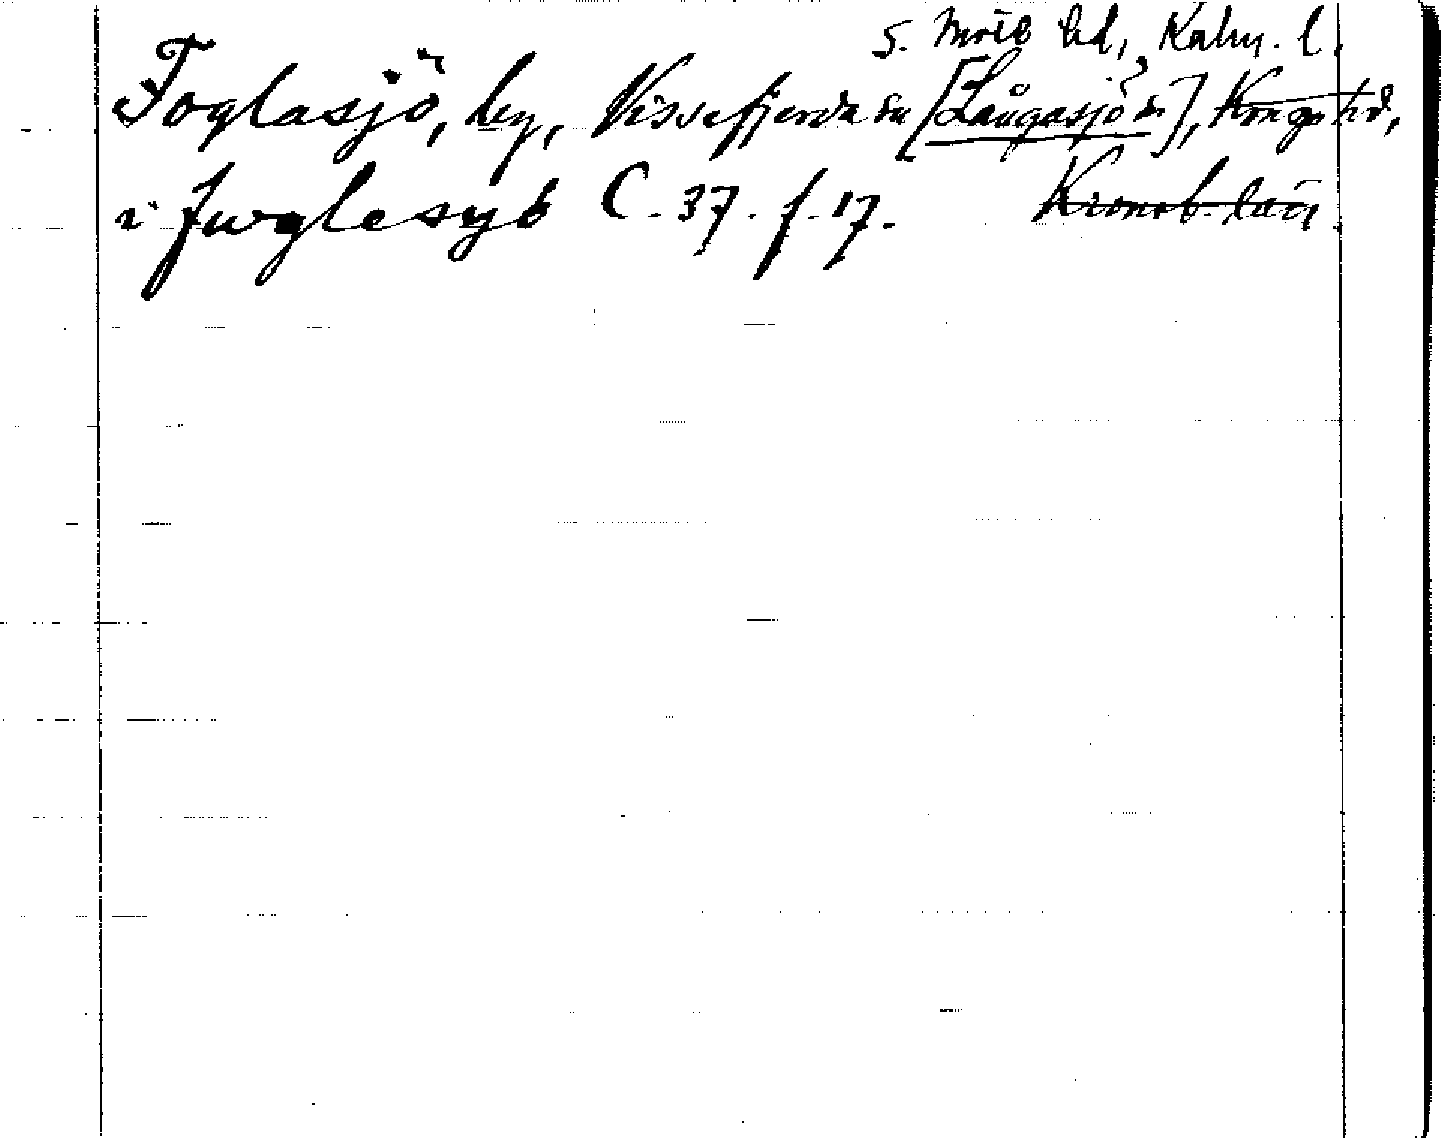 S. Möre hd, Kalm. l.
Foglasjö, by, Vissefjerda sn [Långasjö sn], Konga hd,
i Fuglesyö C. 37. f. 17. Kronob. län.